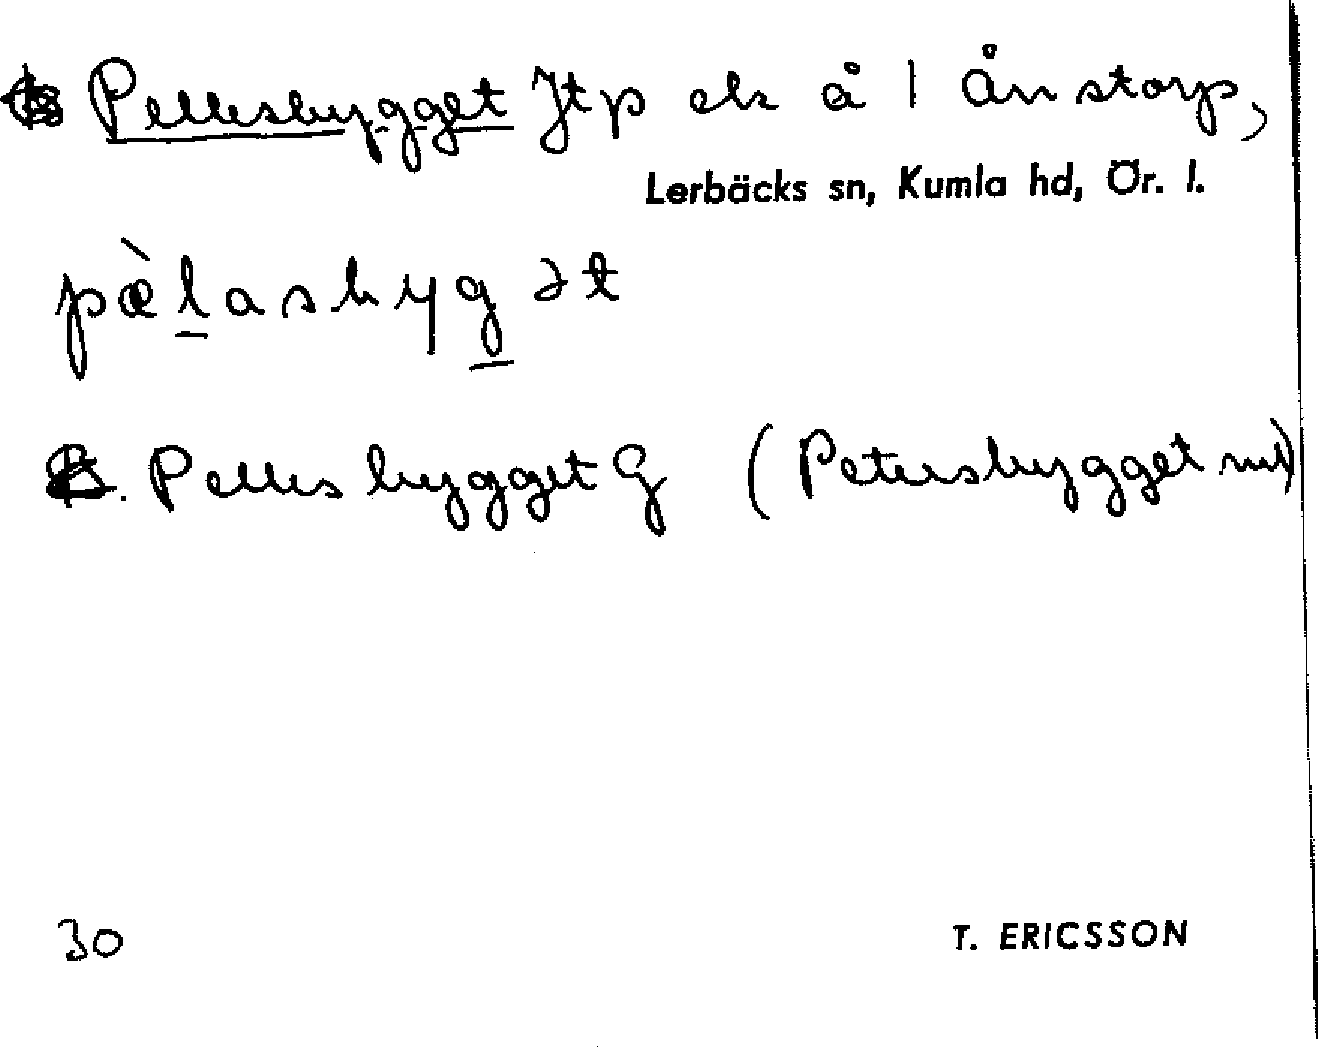 Pellesbygget Jtp ek å 1 Ånstorp,
Lerbäcks sn, Kumla hd, Ör. l.
pæ̀lasbygət
Pelles bygget G (Petersbygget
30
T. ERICSSON